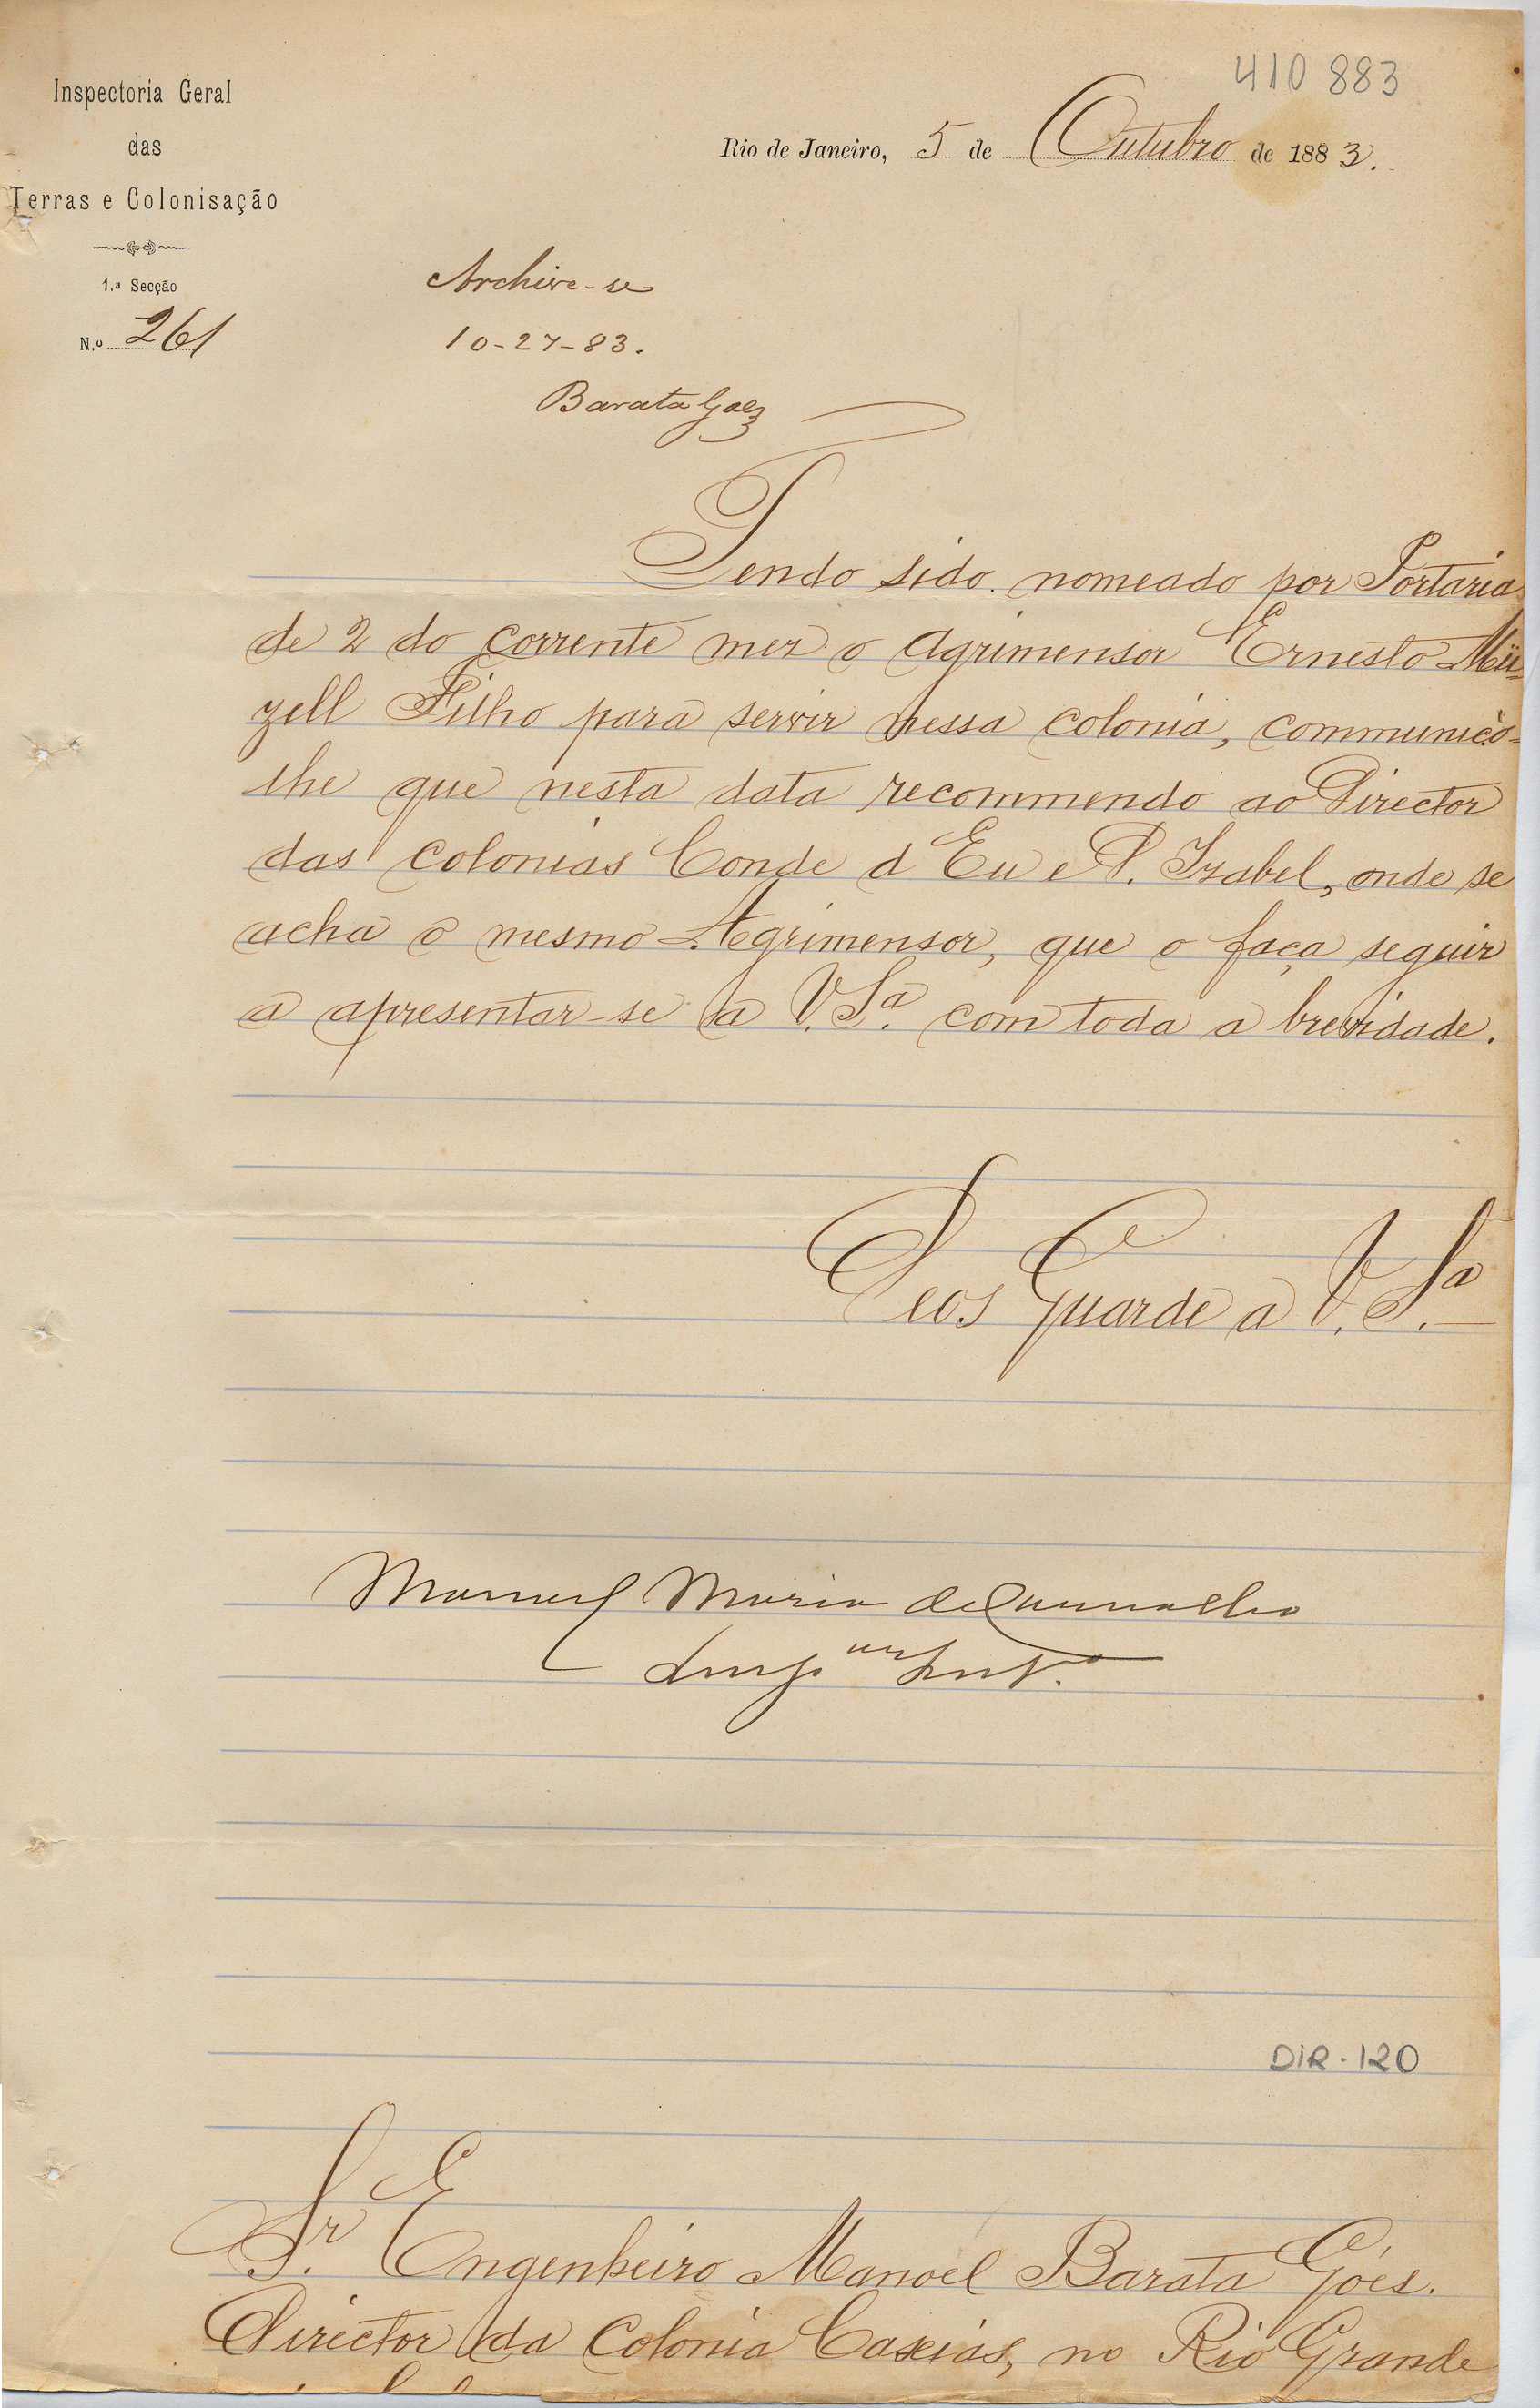 410 883
Inspectoria Geral
das
Terras e Colonisação
1.ª Secção
N.º 261
Rio de Janeiro, 5 de Outubro de 1883.
Archive-se
10-27-83.
Barata Góes
Tendo sido nomeado por Portaria
de 2 do corrente mez o Agrimensor Ernesto Mü=
zell Filho para servir nessa colonia, communico=
lhe que nesta data recommendo ao Director
das colonias Conde d'Eu e D. Izabel, onde se
acha o mesmo Agrimensor, que o faça seguir
a apresentar-se a V. Sª. com toda a brevidade.
Deos Guarde a V. Sª.
Manuel Maria de Carvalho
DIR-120
Sr. Engenheiro Manoel Barata Góes.
Director da Colonia Caxias, no Rio Grande